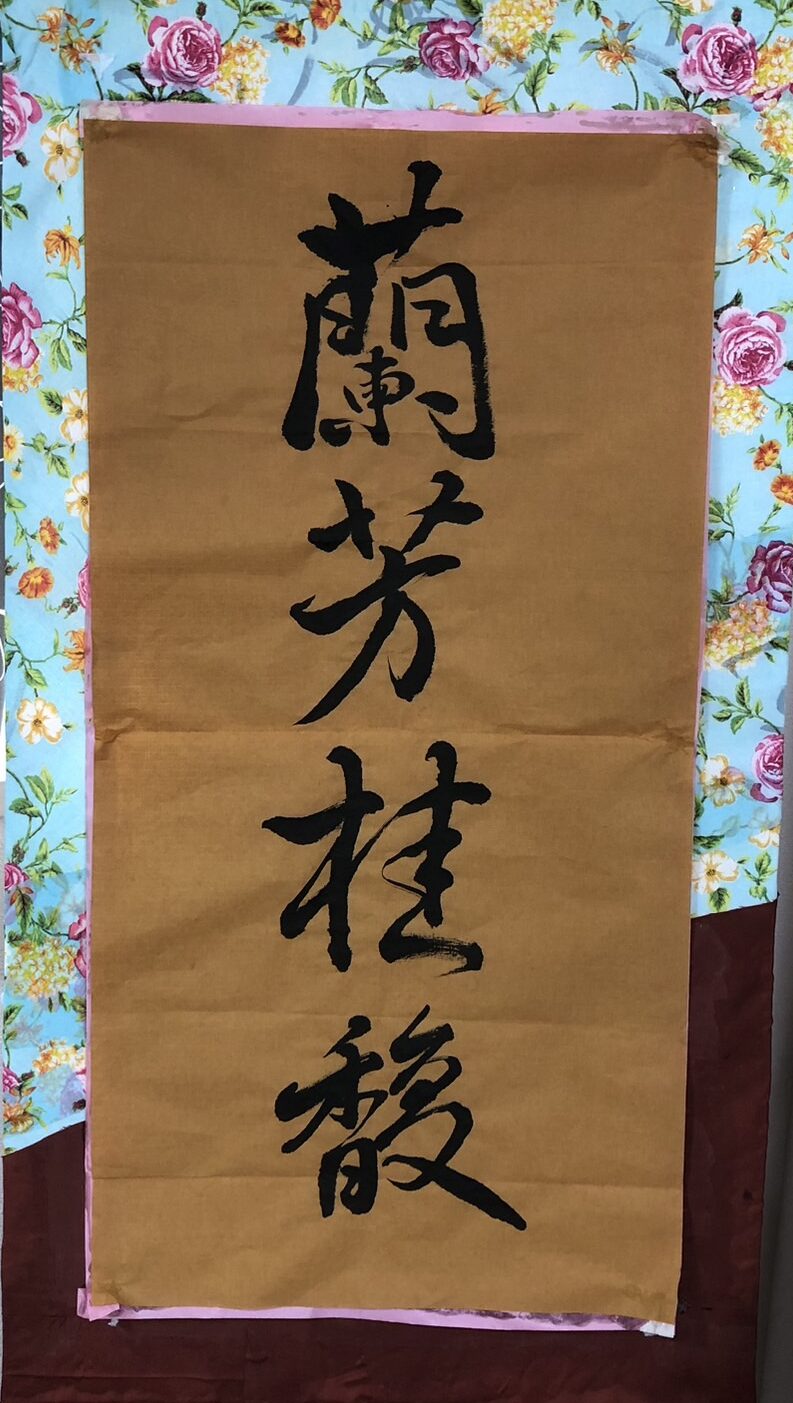 蘭芳桂馥